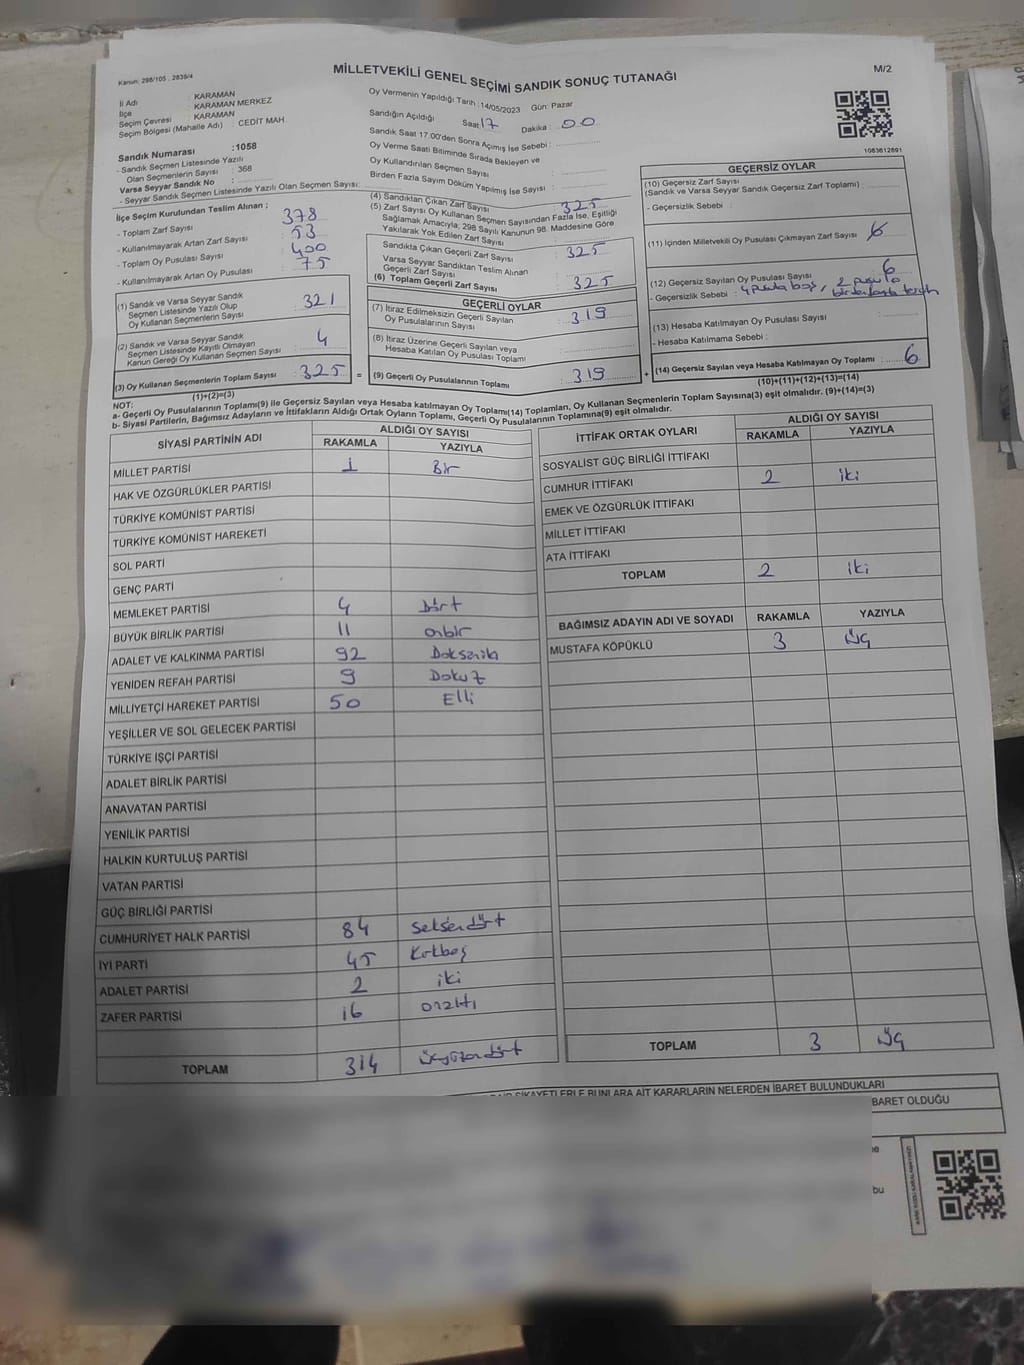 Kanun: 298/105 ; 2839/4
MİLLETVEKİLİ GENEL SEÇİMİ SANDIK SONUÇ TUTANAĞI
M/2
İl Adı : KARAMAN
İlçe : KARAMAN MERKEZ
Seçim Çevresi : KARAMAN
Seçim Bölgesi (Mahalle Adı) : CEDİT MAH
Oy Vermenin Yapıldığı Tarih :14/05/2023 Gün: Pazar
Sandığın Açıldığı Saat 17 Dakika : 00
Sandık Saat 17.00'den Sonra Açımış İse Sebebi :
Oy Verme Saati Bitiminde Sırada Bekleyen ve
Oy Kullandırılan Seçmen Sayısı :
Birden Fazla Sayım Döküm Yapılmış İse Sayısı :
1083612891
Sandık Numarası :1058
- Sandık Seçmen Listesinde Yazılı
Olan Seçmenlerin Sayısı : 368
Varsa Seyyar Sandık No :
- Seyyar Sandık Seçmen Listesinde Yazılı Olan Seçmen Sayısı:
İlçe Seçim Kurulundan Teslim Alınan ;
- Toplam Zarf Sayısı : 378
- Kullanılmayarak Artan Zarf Sayısı : 53
- Toplam Oy Pusulası Sayısı : 400
- Kullanılmayarak Artan Oy Pusulası : 75
(1) Sandık ve Varsa Seyyar Sandık
Seçmen Listesinde Yazılı Olup
Oy Kullanan Seçmenlerin Sayısı : 321
(2) Sandık ve Varsa Seyyar Sandık
Seçmen Listesinde Kayıtlı Olmayan
Kanun Gereği Oy Kullanan Seçmen Sayısı : 4
(3) Oy Kullanan Seçmenlerin Toplam Sayısı : 325 =
(1)+(2)=(3)
(4) Sandıktan Çıkan Zarf Sayısı : 325
(5) Zarf Sayısı Oy Kullanan Seçmen Sayısından Fazla İse, Eşitliği
Sağlamak Amacıyla; 298 Sayılı Kanunun 98. Maddesine Göre
Yakılarak Yok Edilen Zarf Sayısı :
Sandıkta Çıkan Geçerli Zarf Sayısı : 325
Varsa Seyyar Sandıktan Teslim Alınan
Geçerli Zarf Sayısı :
(6) Toplam Geçerli Zarf Sayısı : 325
GEÇERLİ OYLAR
(7) İtiraz Edilmeksizin Geçerli Sayılan
Oy Pusulalarının Sayısı : 319
(8) İtiraz Üzerine Geçerli Sayılan veya
Hesaba Katılan Oy Pusulası Toplamı :
(9) Geçerli Oy Pusulalarının Toplamı : 319 +
GEÇERSİZ OYLAR
(10) Geçersiz Zarf Sayısı
(Sandık ve Varsa Seyyar Sandık Geçersiz Zarf Toplamı) :
- Geçersizlik Sebebi :
(11) İçinden Milletvekili Oy Pusulası Çıkmayan Zarf Sayısı :
(12) Geçersiz Sayılan Oy Pusulası Sayısı : 6
- Geçersizlik Sebebi : 4 pusula boş, 2 pusula
(13) Hesaba Katılmayan Oy Pusulası Sayısı :
- Hesaba Katılmama Sebebi :
(14) Geçersiz Sayılan veya Hesaba Katılmayan Oy Toplamı : 6
(10)+(11)+(12)+(13)=(14)
NOT:
a- Geçerli Oy Pusulalarının Toplamı(9) ile Geçersiz Sayılan veya Hesaba katılmayan Oy Toplamı(14) Toplamları, Oy Kullanan Seçmenlerin Toplam Sayısına(3) eşit olmalıdır. (9)+(14)=(3)
b- Siyasi Partilerin, Bağımsız Adayların ve İttifakların Aldığı Ortak Oyların Toplamı, Geçerli Oy Pusulalarının Toplamına(9) eşit olmalıdır.
SİYASİ PARTİNİN ADI ALDIĞI OY SAYISI
RAKAMLA YAZIYLA
MİLLET PARTİSİ 1 Bir
HAK VE ÖZGÜRLÜKLER PARTİSİ
TÜRKİYE KOMÜNİST PARTİSİ
TÜRKİYE KOMÜNİST HAREKETİ
SOL PARTİ
GENÇ PARTİ
MEMLEKET PARTİSİ 4 Dört
BÜYÜK BİRLİK PARTİSİ 11 onbir
ADALET VE KALKINMA PARTİSİ 92 Doksaniki
YENİDEN REFAH PARTİSİ 9 Dokuz
MİLLİYETÇİ HAREKET PARTİSİ 50 Elli
YEŞİLLER VE SOL GELECEK PARTİSİ
TÜRKİYE İŞÇİ PARTİSİ
ADALET BİRLİK PARTİSİ
ANAVATAN PARTİSİ
YENİLİK PARTİSİ
HALKIN KURTULUŞ PARTİSİ
VATAN PARTİSİ
GÜÇ BİRLİĞİ PARTİSİ
CUMHURİYET HALK PARTİSİ 84 seksendört
İYİ PARTİ 45 Kırkbeş
ADALET PARTİSİ 2 iki
ZAFER PARTİSİ 16 onaltı
TOPLAM 314 üçyüzondört
İTTİFAK ORTAK OYLARI ALDIĞI OY SAYISI
RAKAMLA YAZIYLA
SOSYALİST GÜÇ BİRLİĞİ İTTİFAKI
CUMHUR İTTİFAKI 2 iki
EMEK VE ÖZGÜRLÜK İTTİFAKI
MİLLET İTTİFAKI
ATA İTTİFAKI
TOPLAM 2 iki
BAĞIMSIZ ADAYIN ADI VE SOYADI RAKAMLA YAZIYLA
MUSTAFA KÖPÜKLÜ 3 üç
TOPLAM 3 üç
ŞİKAYETLERLE BUNLARA AİT KARARLARIN NELERDEN İBARET BULUNDUKLARI
BARET OLDUĞU
bu